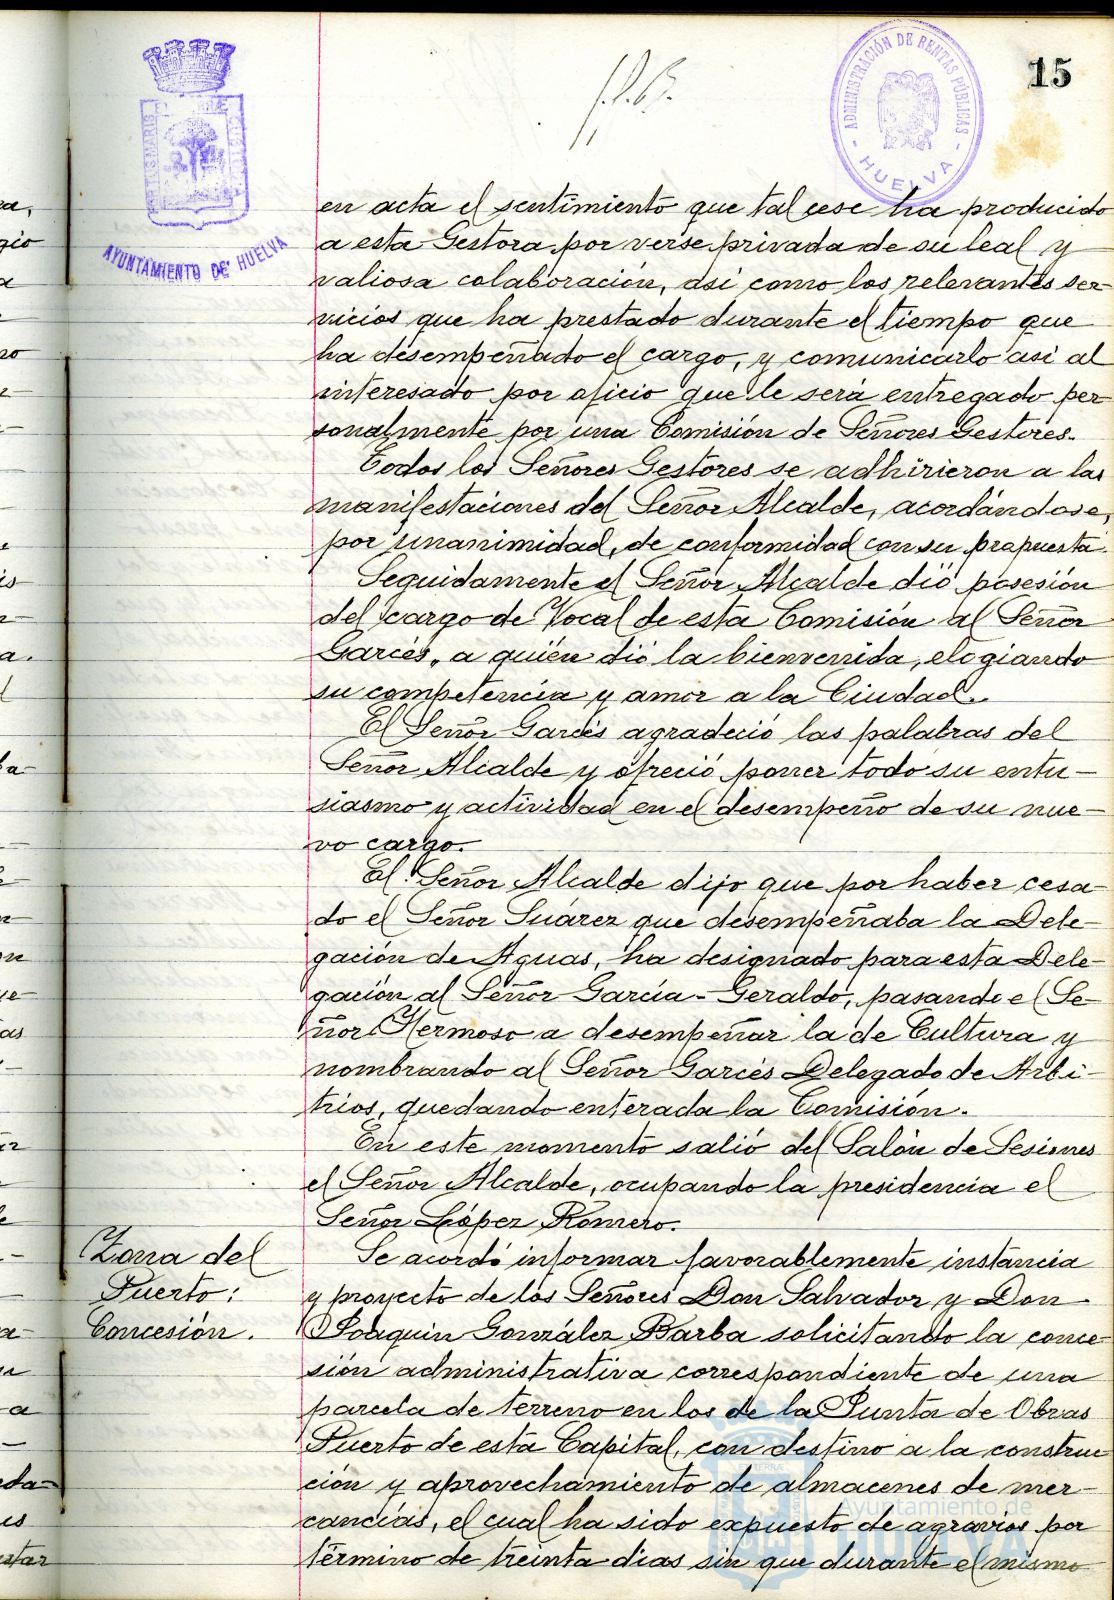 15
ADMINISTRACIÓN DE RENTAS PÚBLICAS
- HUELVA -
AYUNTAMIENTO DE HUELVA
en acta el sentimiento que tal cese ha producido
a esta Gestora por verse privada de su leal y
valiosa colaboración, asi como los relevantes ser-
vicios que ha prestado durante el tiempo que
ha desempeñado el cargo, y comunicarlo asi al
interesado por oficio que le será entregado per
sonalmente por una Comisión de Señores Gestores.
Todos los Señores Gestores se adhirieron a las
manifestaciones del Señor Alcalde, acordándose,
por unanimidad, de conformidad con su propuesta.
Seguidamente el Señor Alcalde dió posesión
del cargo de Vocal de esta Comisión al Señor
Garcés, a quién dió la bienvenida, elogiando
su competencia y amor a la Ciudad.
El Señor Garcés agradeció las palabras del
Señor Alcalde y ofreció poner todo su entu-
siasmo y actividad en el desempeño de su nue-
vo cargo.
El Señor Alcalde dijo que por haber cesa-
do el Señor Suárez que desempeñaba la Dele-
gación de Aguas, ha designado para esta Dele-
gación al Señor García-Geraldo, pasando el Se-
ñor Hermoso a desempeñar la de Cultura y
nombrando al Señor Garcés Delegado de Arbi-
trios, quedando enterada la Comisión.
En este momento salió del Salón de Sesiones
el Señor Alcalde, ocupando la presidencia el
Señor López Romero.
Zona del
Puerto:
Concesión.
Se acordó informar favorablemente instancia
y proyecto de los Señores Don Salvador y Don
Joaquin González Barba solicitando la conce-
sión administrativa correspondiente de una
parcela de terreno en los de la Junta de Obras
Puerto de esta Capital, con destino a la construc
ción y aprovechamiento de almacenes de mer-
cancías, el cual ha sido expuesto de agravios por
término de treinta dias sin que durante el mismo
Ayuntamiento de
HUELVA